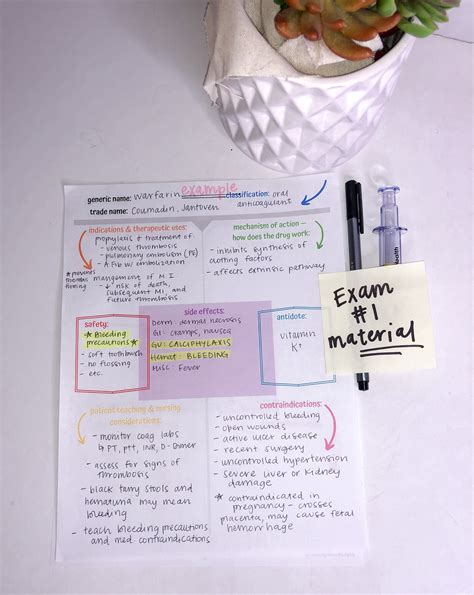 example
generic name: warfarin
classification: oral anticoagulant
trade name: Coumadin, Jantoven
indications & therapeutic uses:
prophylaxis + treatment of:
- venous thrombosis
- pulmonary embolism (PE)
- A Fib w/ embolization
* prevents thrombus forming
management of MI
- ↓ risk of death, subsequent MI, and future thrombosis
mechanism of action –
how does the drug work:
- inhibits synthesis of clotting factors
- affects extrinsic pathway
safety:
* Bleeding precautions *
- soft toothbrush
- no flossing
- etc.
side effects:
Derm: dermal necrosis
GI: cramps, nausea
GU: CALCIPHYLAXIS
Hemat: BLEEDING
Misc: Fever
antidote:
vitamin K
Exam
#1
material
patient teaching & nursing
considerations:
- monitor coag labs
↳ PT, ptt, INR, D-Dimer
- assess for signs of thrombosis
- black tarry stools and hematuria may mean bleeding
- teach bleeding precautions and med contraindications
contraindications:
- uncontrolled bleeding
- open wounds
- active ulcer disease
- recent surgery
- uncontrolled hypertension
- severe liver or kidney damage
* contraindicated in pregnancy - crosses placenta, may cause fetal hemorrhage